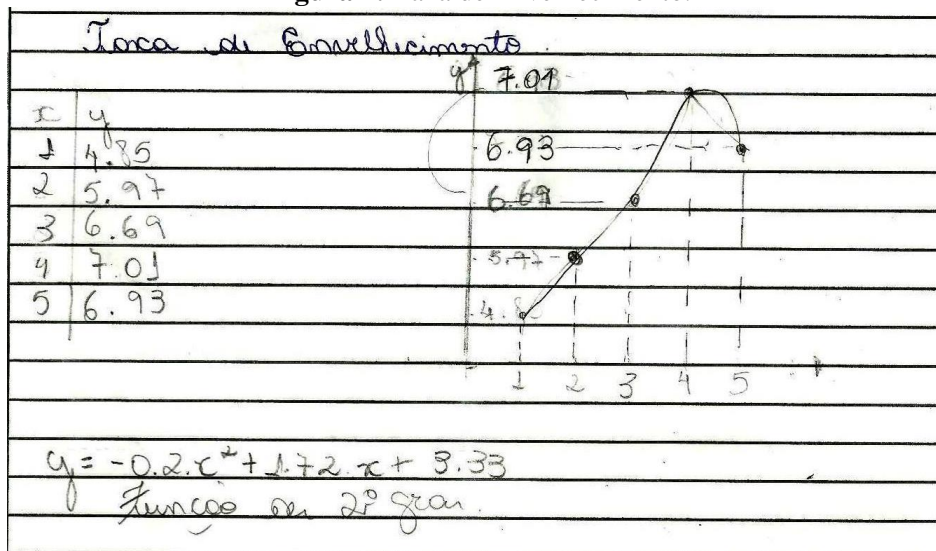 Taxa de Envelhecimento.
x y
1 4.85
2 5.97
3 6.69
4 7.01
5 6.93
y
7.01
6.93
6.69
5.97
4.8
1 2 3 4 5
y = -0.2.x² + 1.72.x + 3.33
Função de 2º grau.